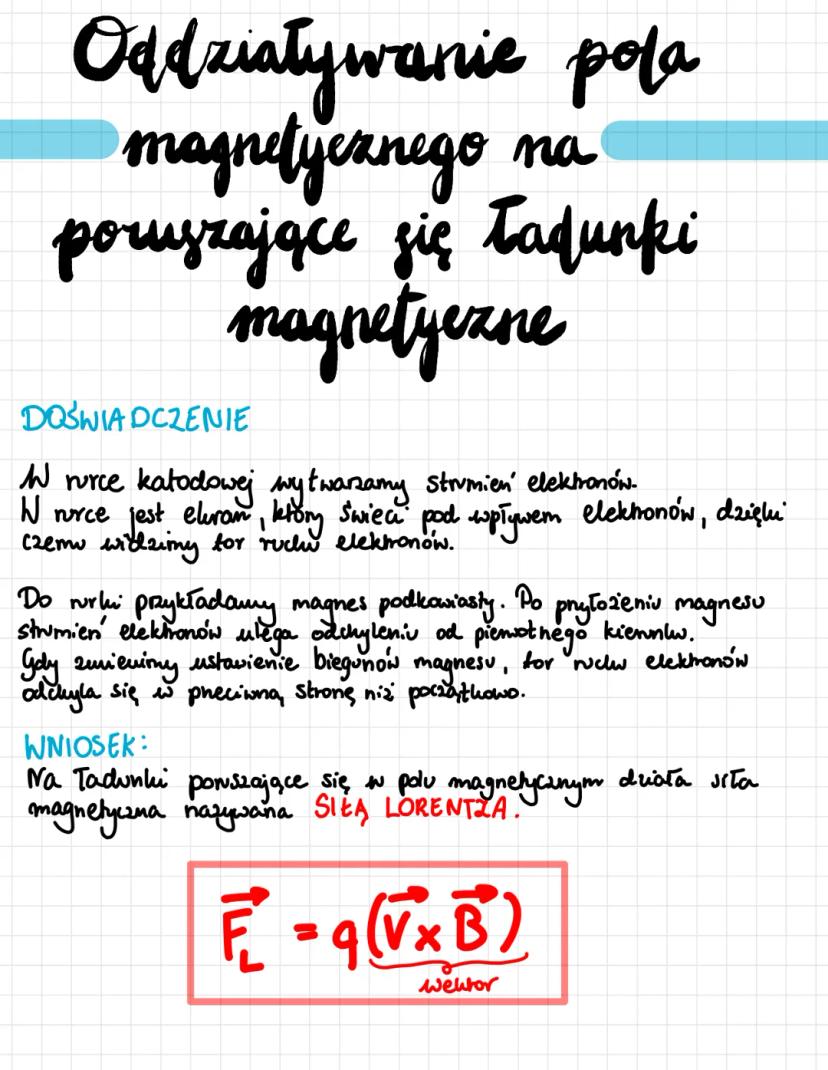 Oddziaływanie pola
magnetycznego na
poruszające się ładunki
magnetyczne
DOŚWIADCZENIE
W rurce katodowej wytwarzamy strumień elektronów.
W rurce jest ekran, który świeci pod wpływem elektronów, dzięki
czemu widzimy tor ruchu elektronów.
Do rurki przykładamy magnes podkowiasty. Po przyłożeniu magnesu
strumień elektronów ulega odchyleniu od pierwotnego kierunku.
Gdy zmienimy ustawienie biegunów magnesu, tor ruchu elektronów
odchyla się w przeciwną stronę niż początkowo.
WNIOSEK:
Na ładunki poruszające się w polu magnetycznym działa siła
magnetyczna nazywana SIŁĄ LORENTZA.
F⃗_L = q(V⃗ x B⃗)
wektor